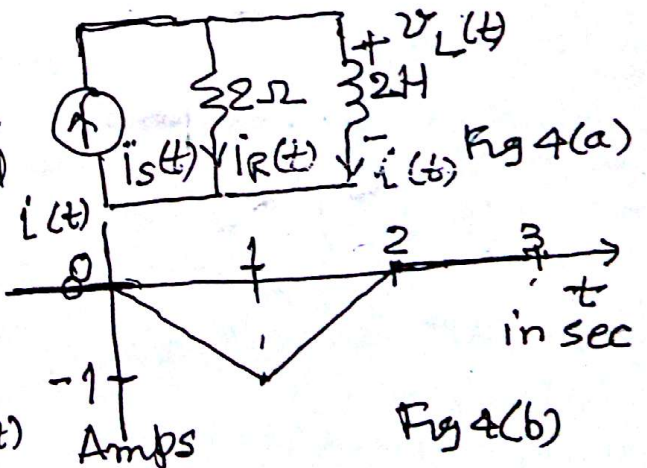 + v_L(t)
2Ω 2H
i_s(t) i_R(t) - i(t) Fig 4(a)
)
i(t)
0 1 2 3
t
in sec
-1
t) Amps Fig 4(b)